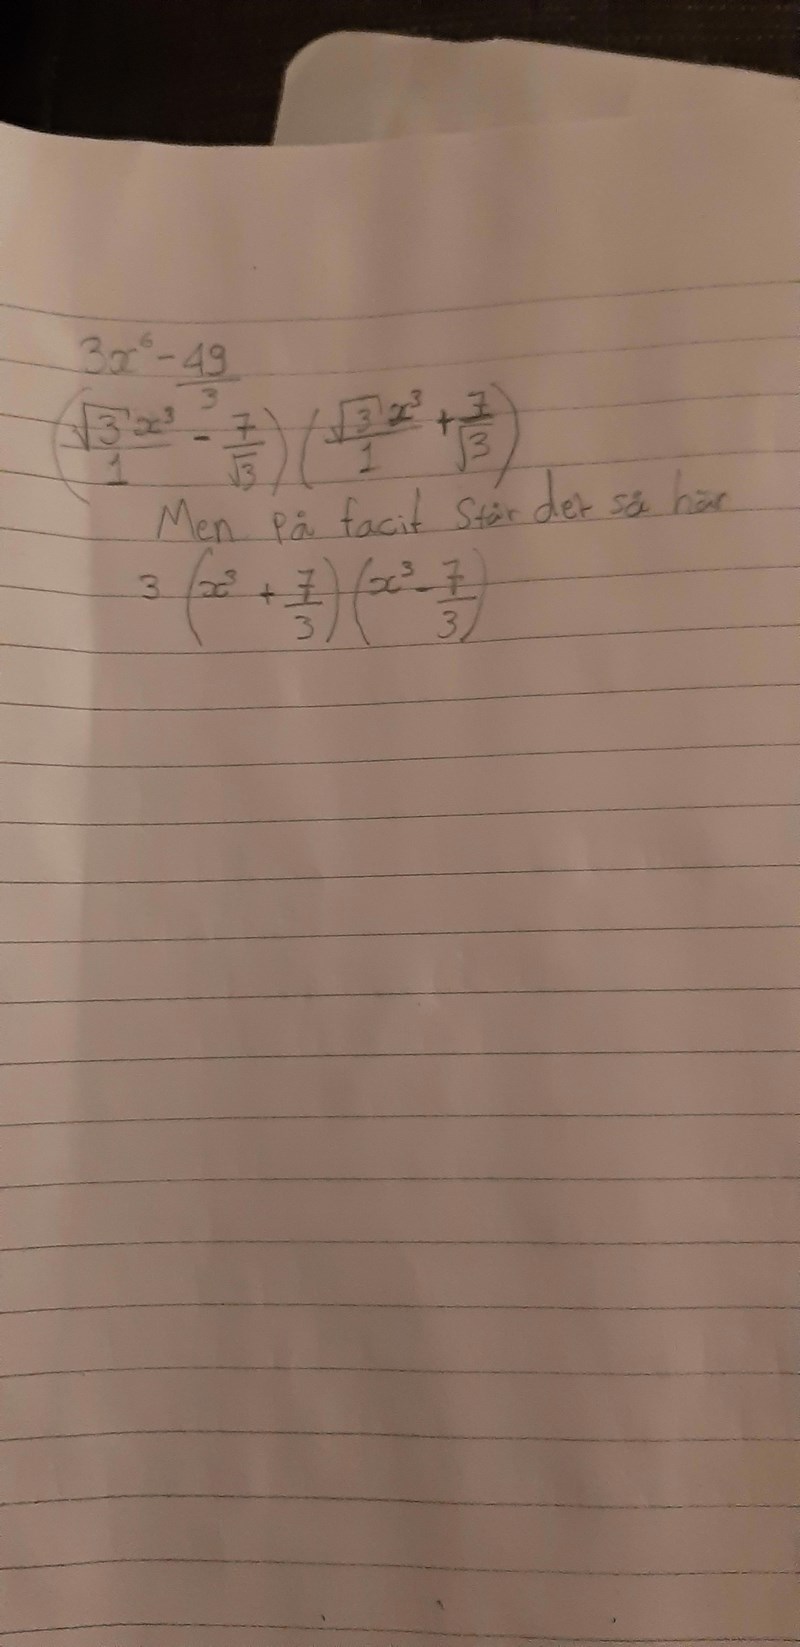 3x⁶ - 49/3
(√3 x³/1 - 7/√3) (√3 x³/1 + 7/√3)
Men på facit står det så här
3 (x³ + 7/3) (x³ - 7/3)